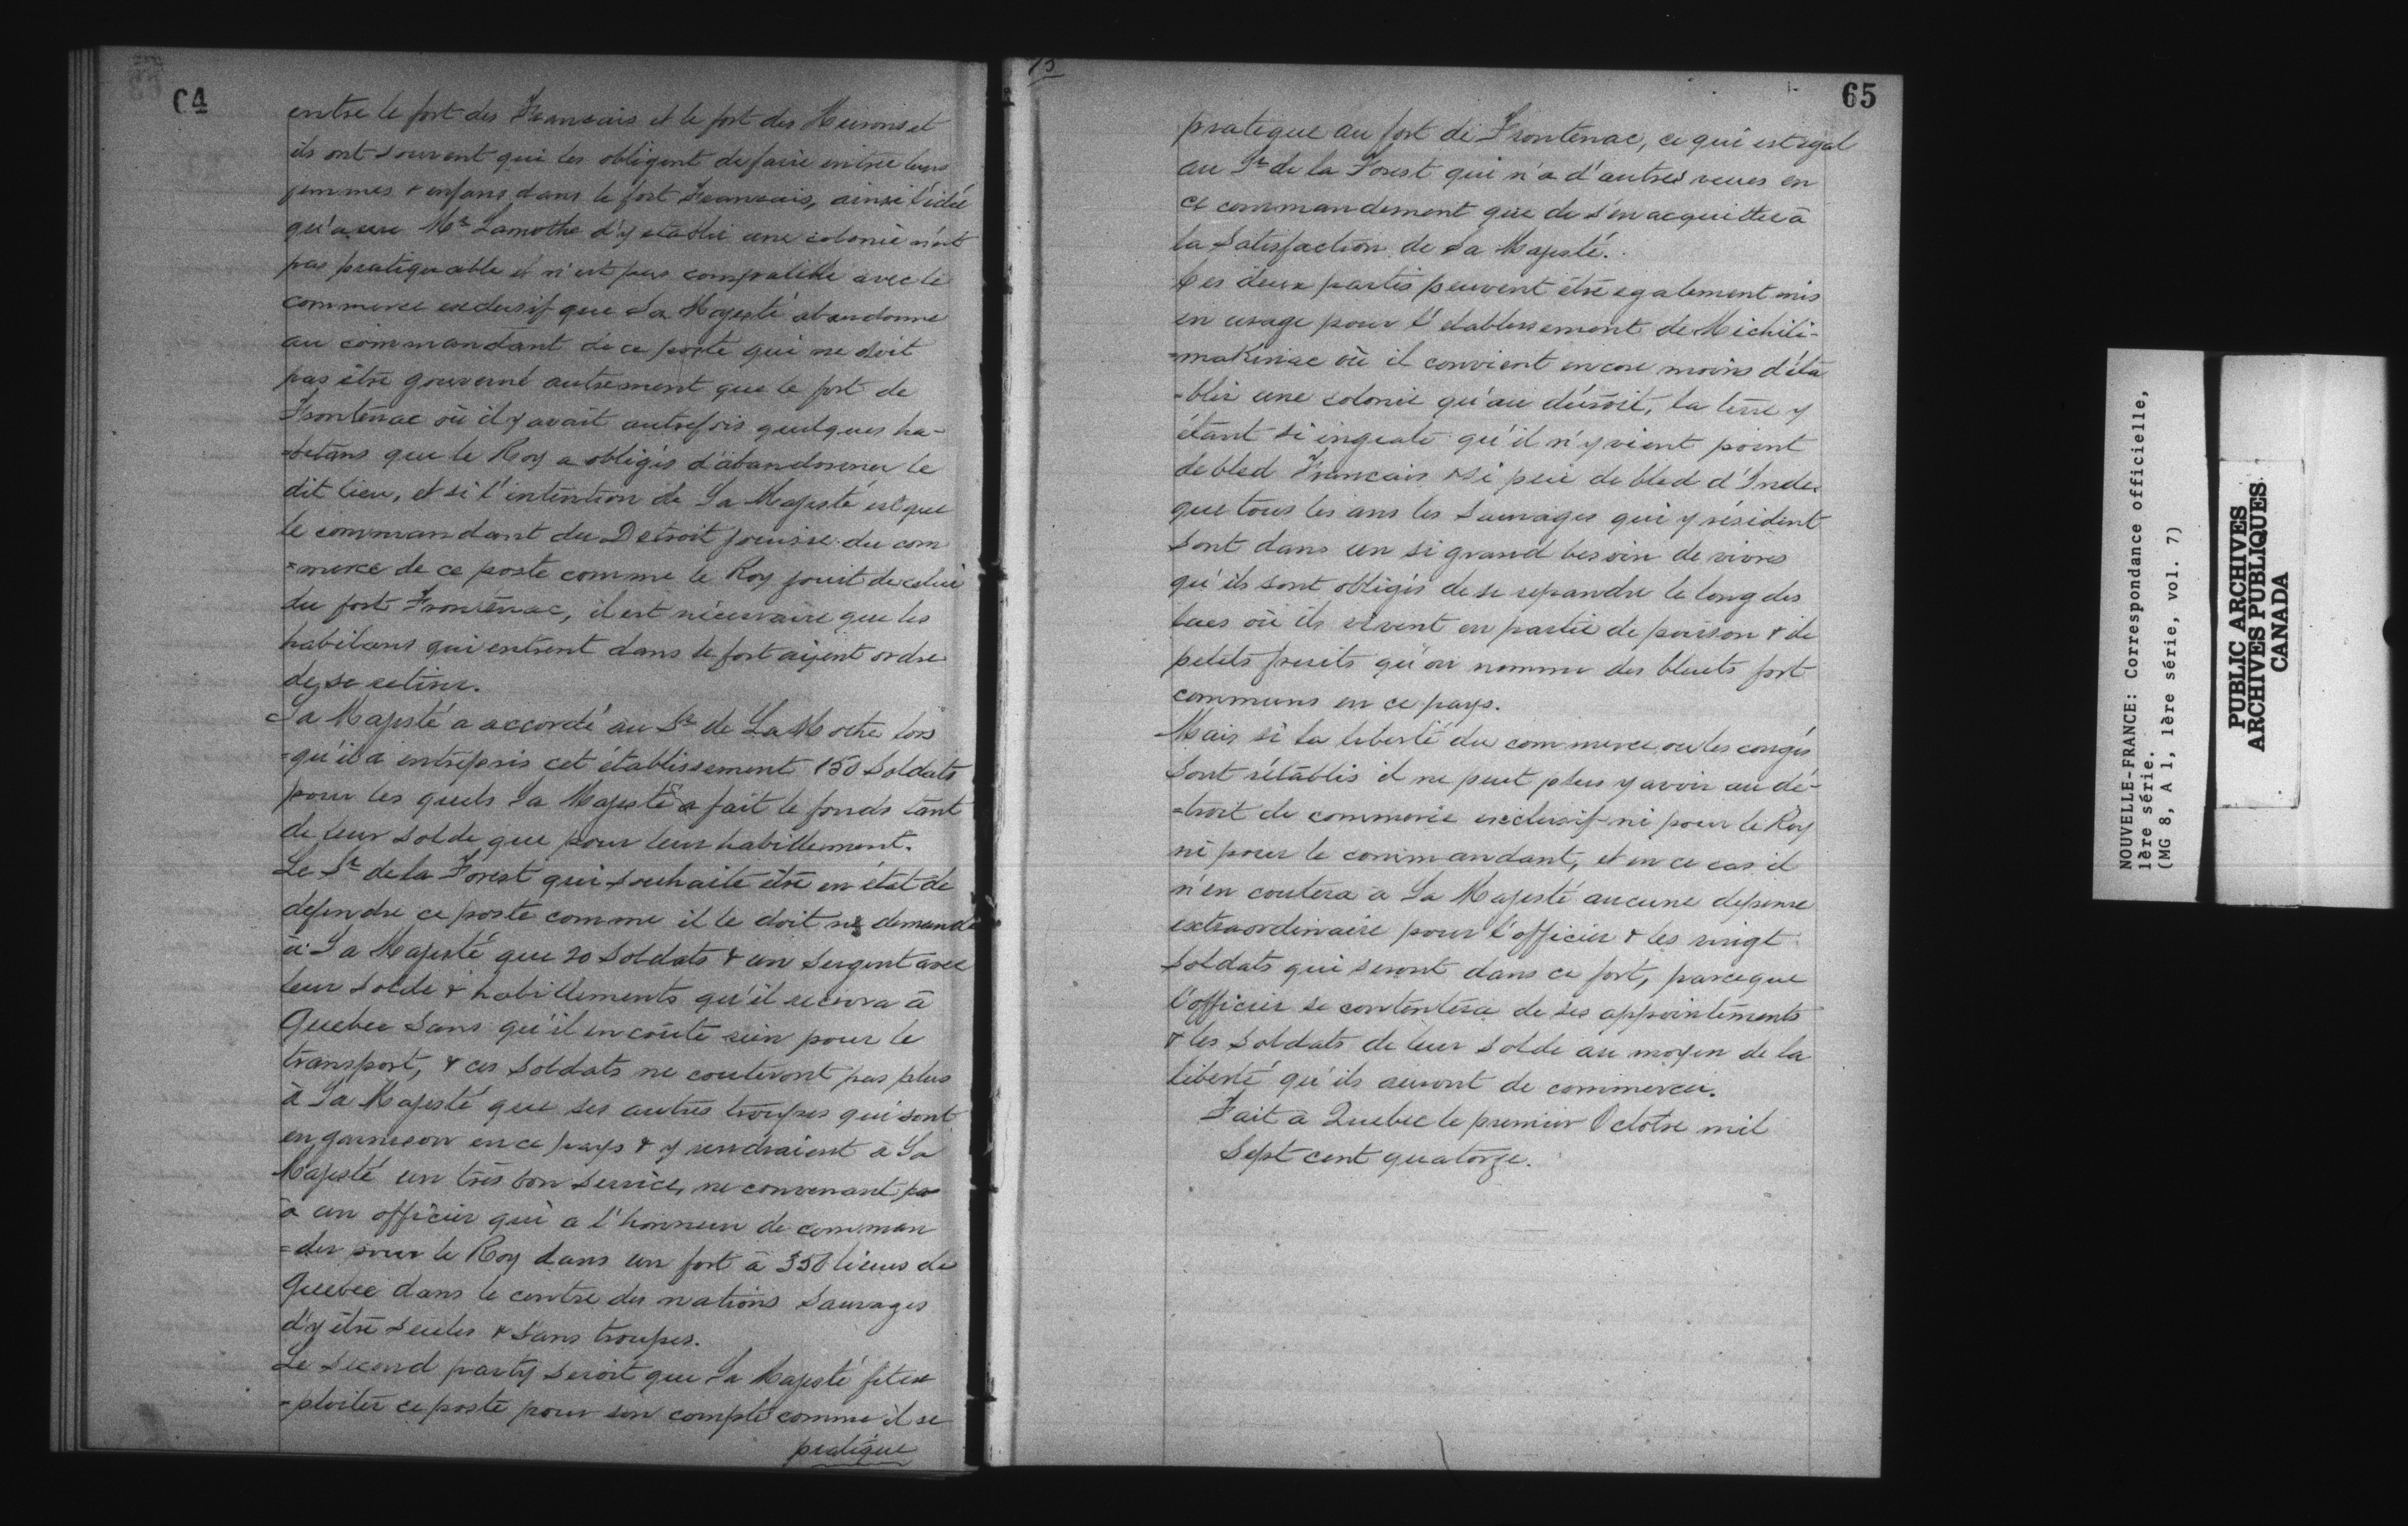 64
entre le fort des Francais et le fort des Heurons et
ils ont souvent qui les obligent de faire entree leurs
femmes & enfans dans le fort Francais, ainsi l'idée
qu'a eue Mr Lamothe d'y etablir une colonie n'est
pas pratiquable et n'est pas compatible avec le
commerce exclusif que Sa Majesté abandonne
au commandant de ce poste qui ne doit
pas être gouverné autrement que le fort de
Frontenac où il y avait autrefois quelques ha-
-bitans que le Roy a obligés d'abandonner le
dit lieu, et si l'intention de Sa Majesté est que
le commandant du Detroit jouisse du com
=merce de ce poste comme le Roy jouit de celui
du fort Frontenac, il est nécessaire que les
habitans qui entrent dans le fort aijent ordre
de se retirer.
Sa Majesté a accordé au Sr de La Mothe lors
=qu'il a entrepris cet établissement 150 Soldats
pour les quels Sa Majesté a fait le fonds tant
de leur solde que pour leur habillement.
Le Sr de la Forest qui souhaite être en état de
defendre ce poste comme il le doit ne demande
à Sa Majesté que 20 Soldats & un Sergent avec
leur solde & habillements qu'il recevra à
Quebec sans qu'il en coûte rien pour le
transport, & ces Soldats ne couteront pas plus
à Sa Majesté que ses autres troupes qui sont
en garnison en ce pays & y rendraient à Sa
Majesté un très bon service, ne convenant pas
à un officier qui a l'honneur de comman
=der pour le Roy dans un fort à 350 lieues de
Quebec dans le centre des nations Sauvages
d'y être seules & sans troupes.
Le second party seroit que Sa Majesté fit ex
-ploiter ce poste pour son compte comme il se
pratique
65
pratique au fort de Frontenac, ce qui est egal
au Sr de la Forest qui n'a d'autres veues en
ce commandement que de s'en acquitter à
la Satisfaction de Sa Majesté.
Ces deux partis peuvent être egalement mis
en usage pour l'etablissement de Michili-
=makinac où il convient encore moins d'éta
-blir une colonie qu'au détroit, la terre y
étant si ingrate qu'il n'y vient point
de bled Francais & si peu de bled d'Inde
que tous les ans les Sauvages qui y résident
sont dans un si grand besoin de vivres
qu'ils sont obligés de se repandre le long des
lacs où ils vivent en partie de poisson & de
petits fruits qu'on nomme des bluets fort
communs en ce pays.
Mais si la liberté du commerce ou les congés
sont rétablis il ne peut plus y avoir au dé-
=troit de commerce exclusif ni pour le Roy
ni pour le commandant, et en ce cas il
n'en coutera à Sa Majesté aucune depense
extraordinaire pour l'officier & les vingt
soldats qui seront dans ce fort, parceque
l'officier se contentera de ses appointements
& les Soldats de leur solde au moyen de la
liberté qu'ils auront de commercer.
Fait à Quebec le premier Octobre mil
Sept cent quatorze.
NOUVELLE-FRANCE: Correspondance officielle,
1ère série.
(MG 8, A 1, 1ère série, vol. 7)
PUBLIC ARCHIVES
ARCHIVES PUBLIQUES
CANADA